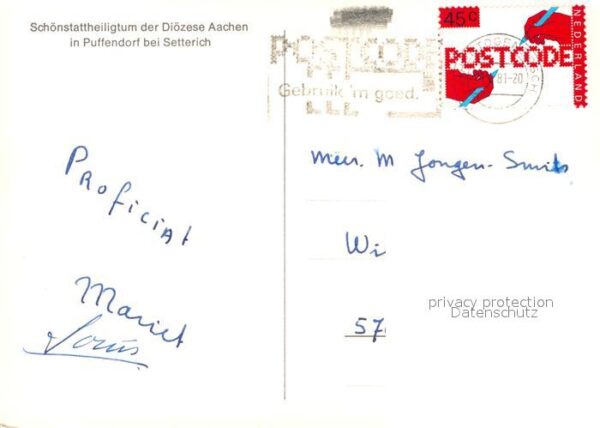 Schönstattheiligtum der Diözese Aachen
in Puffendorf bei Setterich
45c
NEDERLAND
POSTCODE
POSTCODE
Gebruik 'm goed.
81-20
Mevr. M Jongen-Smits
Proficiat
Wi
Mariet
57
privacy protection
Datenschutz